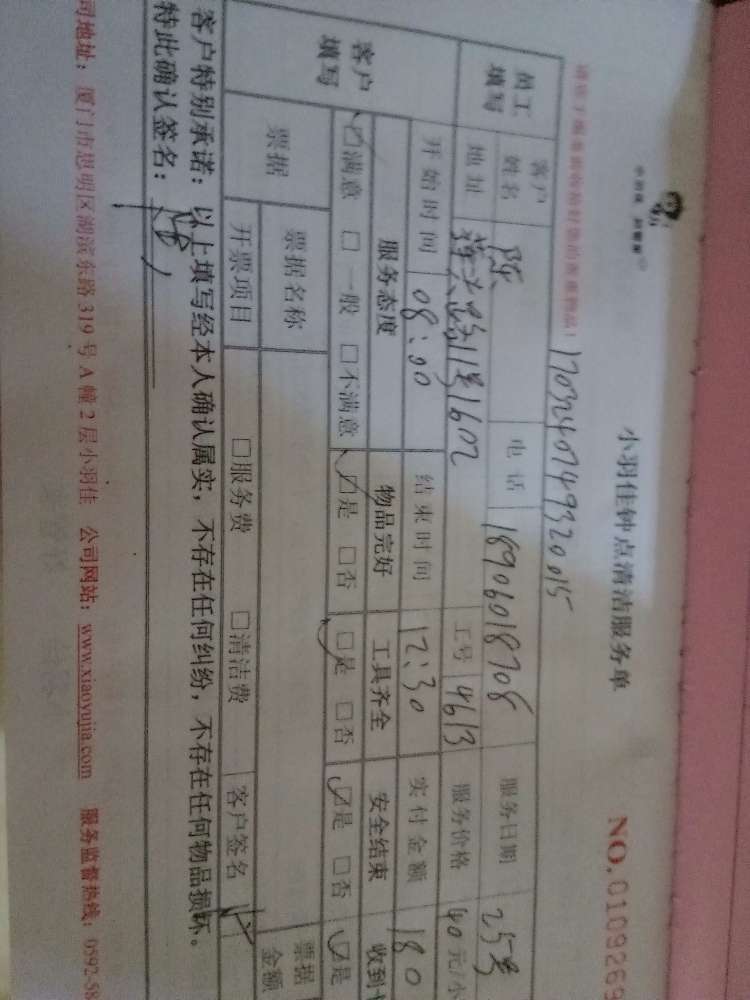 小羽佳钟点清洁服务单
NO.0109269
1703240749320015
员工填写 客户姓名 陈 电话 18906018708 服务日期 25号
地址 11号1602 工号 4613 服务价格 40元/小
开始时间 08:00 结束时间 12:30 实付金额 180
客户填写 服务态度 物品完好 工具齐全 安全结束 收到
☑满意 □一般 □不满意 ☑是 □否 ☑是 □否 ☑是 □否 ☑是
票据 票据名称 票据金额
开票项目 □服务费 □清洁费 客户签名
客户特别承诺:以上填写经本人确认属实,不存在任何纠纷,不存在任何物品损坏。
特此确认签名:
司地址:厦门市思明区湖滨东路319号A幢2层小羽佳 公司网站:www.xiaoyujia.com 服务监督热线:0592-58